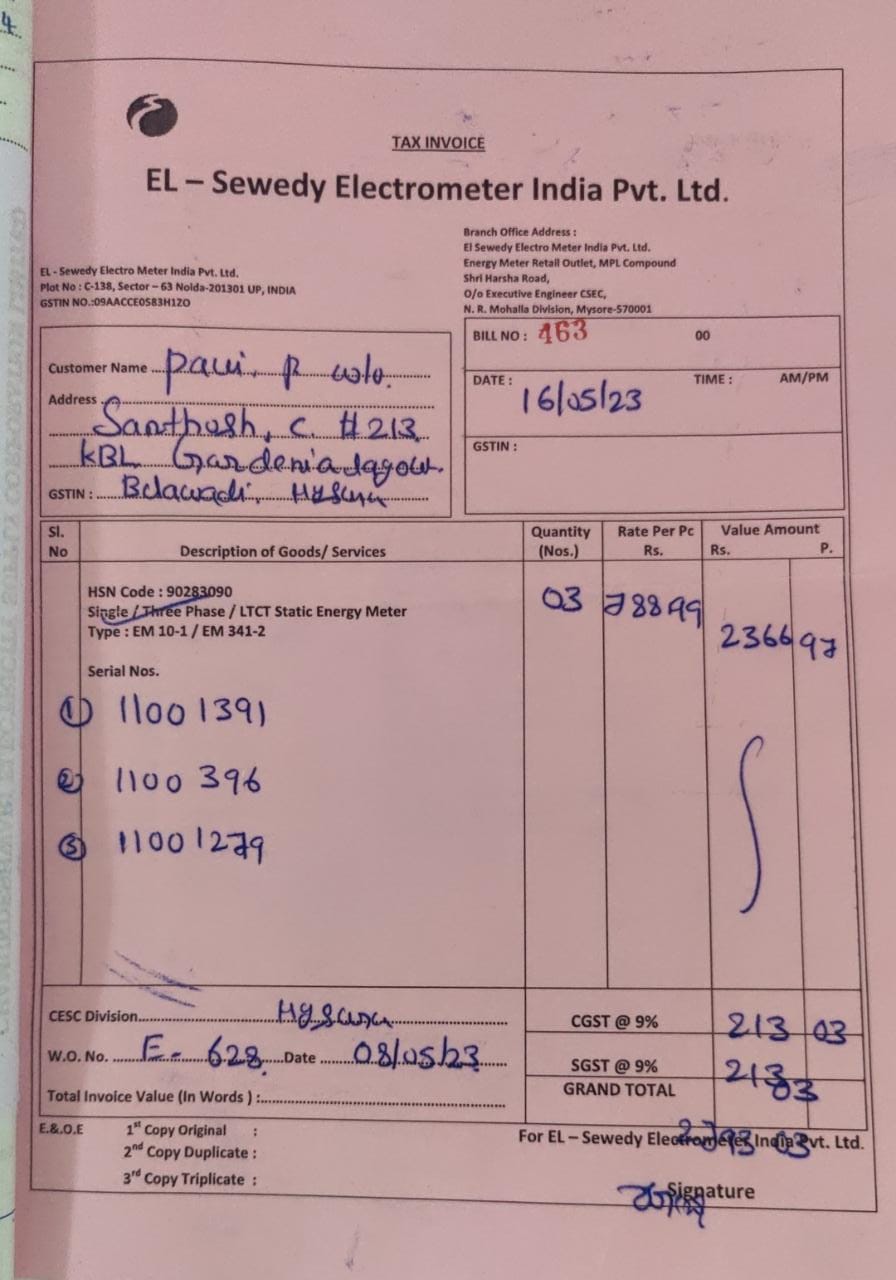 TAX INVOICE
EL – Sewedy Electrometer India Pvt. Ltd.
EL - Sewedy Electro Meter India Pvt. Ltd.
Plot No : C-138, Sector – 63 Noida-201301 UP, INDIA
GSTIN NO.:09AACCE0583H1Z0
Branch Office Address :
El Sewedy Electro Meter India Pvt. Ltd.
Energy Meter Retail Outlet, MPL Compound
Shri Harsha Road,
O/o Executive Engineer CSEC,
N. R. Mohalla Division, Mysore-570001
Customer Name ... R w/o.
Address
Santhosh, C. #213
KBL Gardenia
GSTIN : Belawadi, Mysuru
BILL NO : 463 00
DATE : 16/05/23 TIME : AM/PM
GSTIN :
Sl. No Description of Goods/ Services Quantity (Nos.) Rate Per Pc Rs. Value Amount Rs. P.
HSN Code : 90283090 03 788 99
Single / Three Phase / LTCT Static Energy Meter
Type : EM 10-1 / EM 341-2 2366 97
Serial Nos.
① 11001391
② 1100 396
③ 11001279
CESC Division Mysuru CGST @ 9% 213 03
W.O. No. E- 628 Date 08/05/23 SGST @ 9% 213 03
GRAND TOTAL
Total Invoice Value (In Words ) :
E.&.O.E 1st Copy Original :
2nd Copy Duplicate :
3rd Copy Triplicate :
For EL – Sewedy Electrometer India Pvt. Ltd.
2793 03
Signature